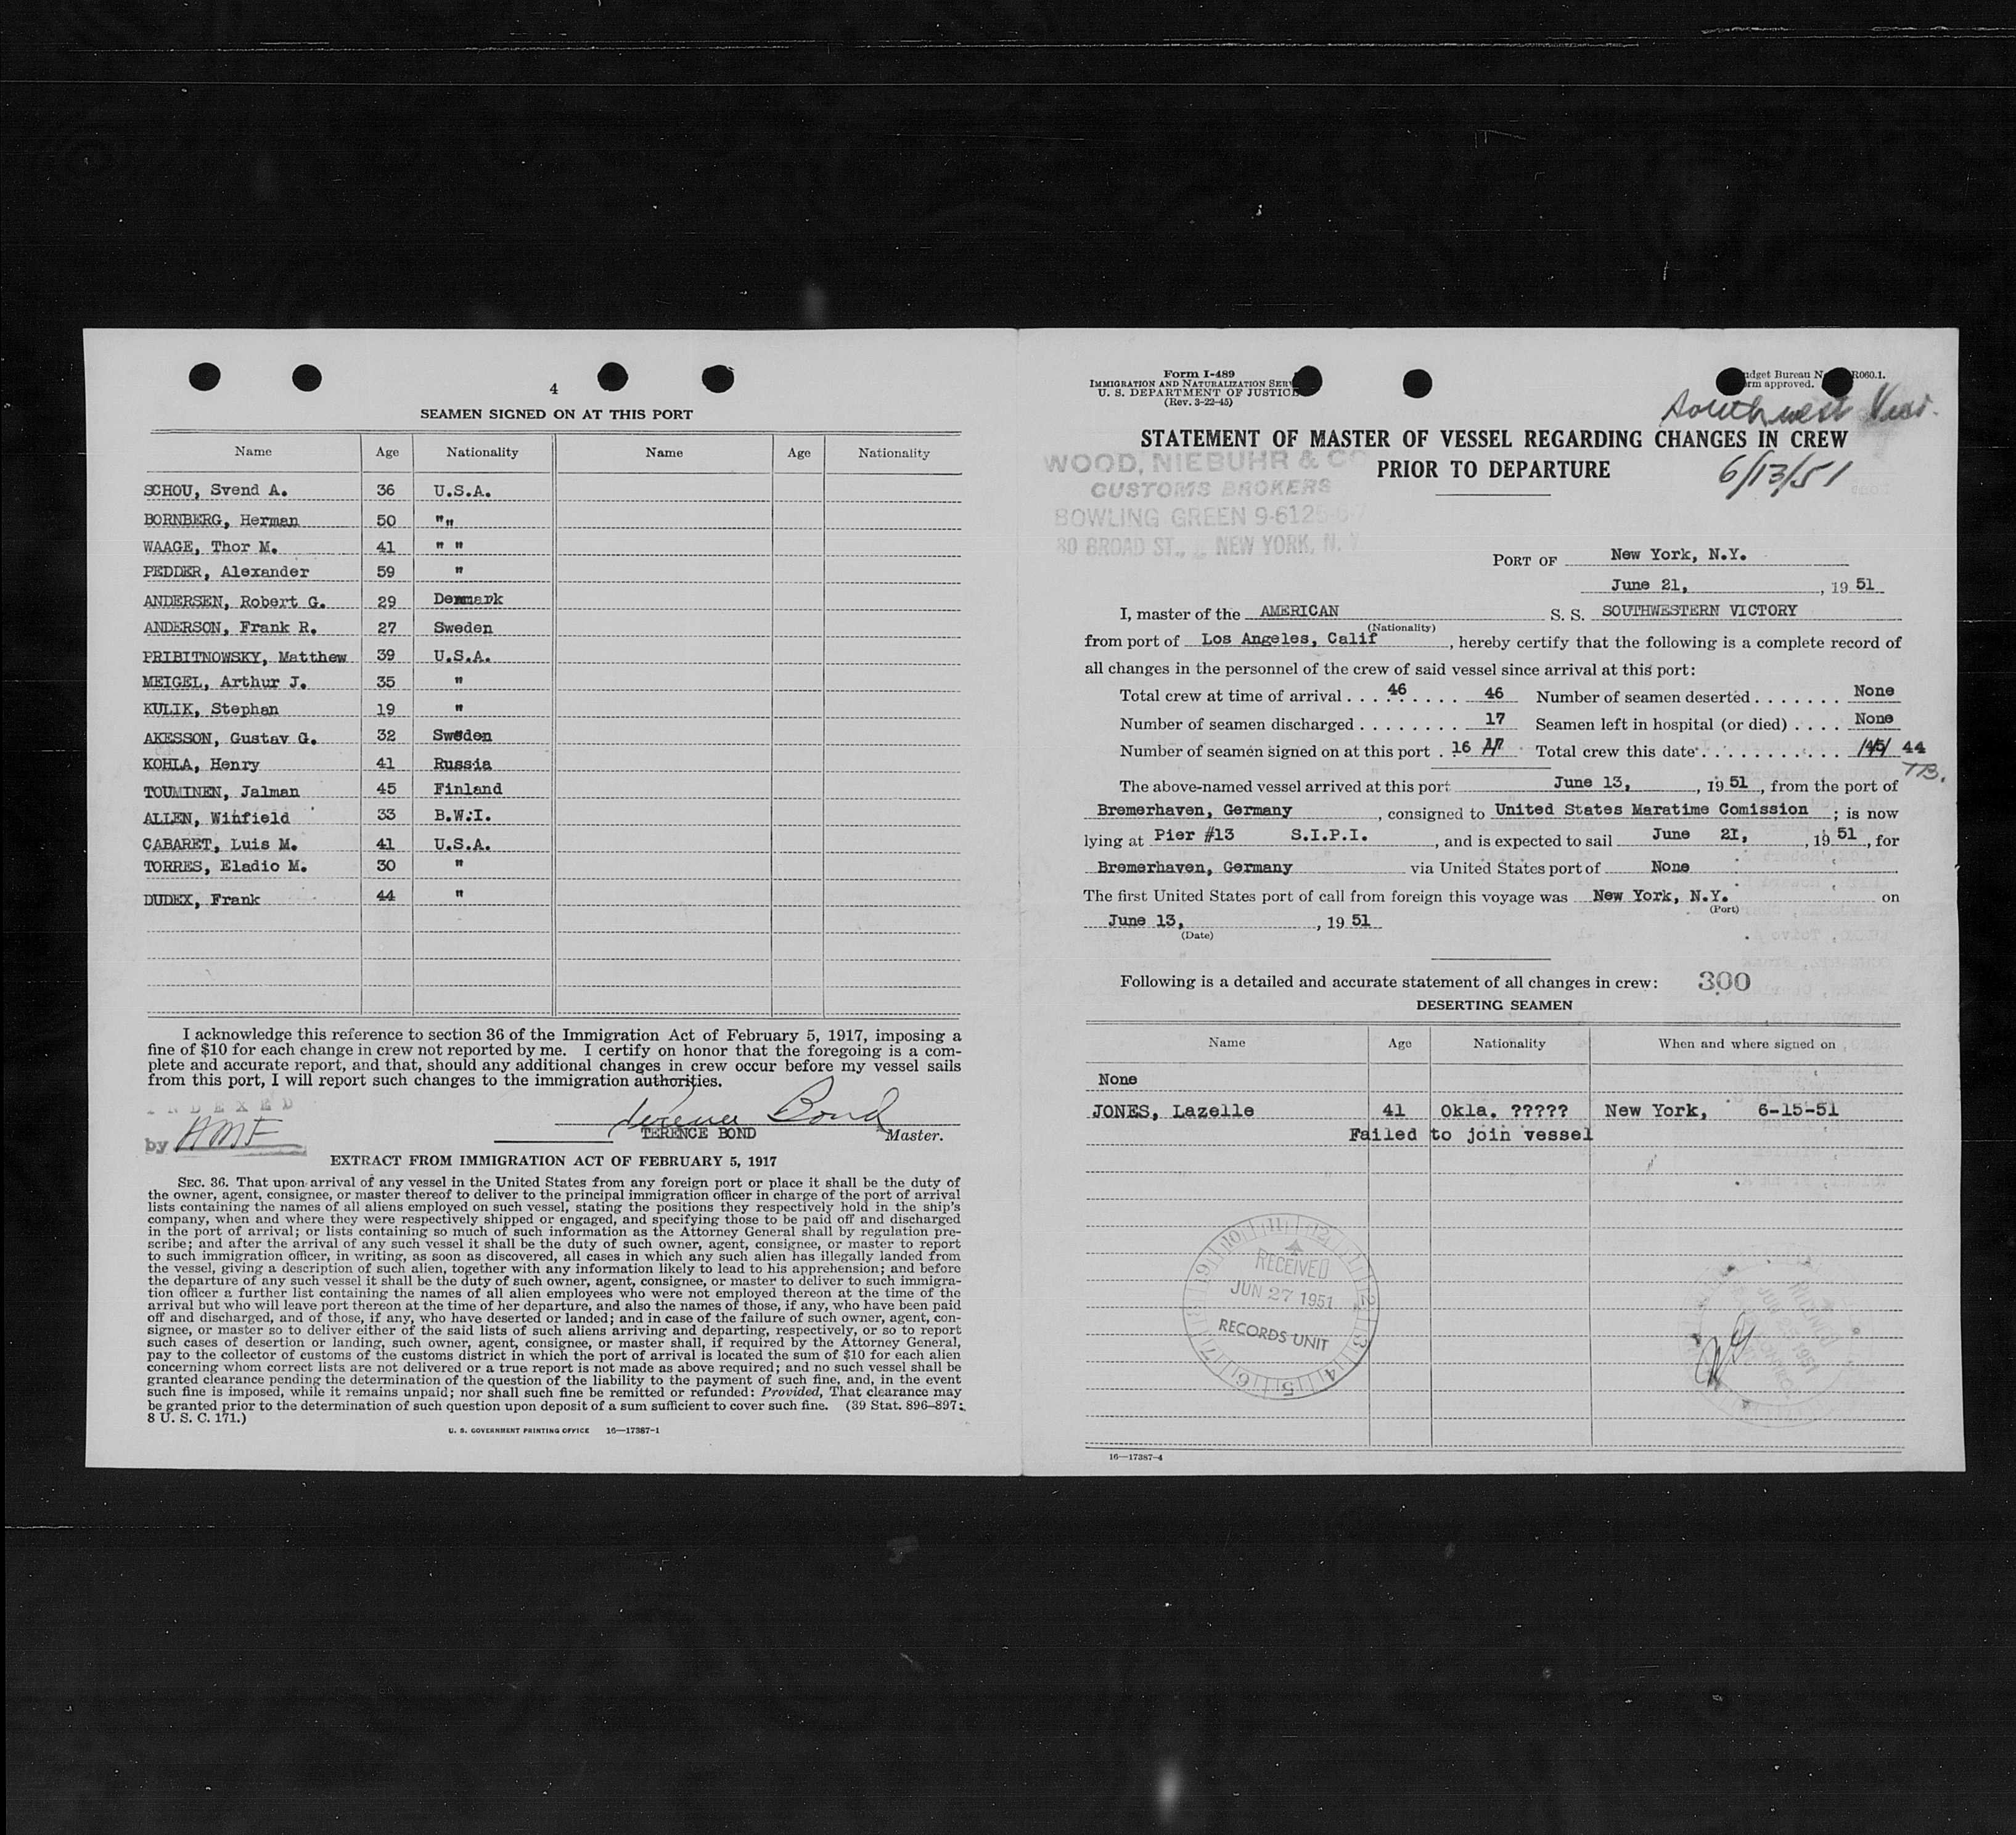 4
SEAMEN SIGNED ON AT THIS PORT
Name Age Nationality Name Age Nationality
SCHOU, Svend A. 36 U.S.A.
BORNBERG, Herman 50 ""
WAAGE, Thor M. 41 " "
PEDDER, Alexander 59 "
ANDERSEN, Robert G. 29 Denmark
ANDERSON, Frank R. 27 Sweden
PRIBITNOWSKY, Matthew 39 U.S.A.
MEIGEL, Arthur J. 35 "
KULIK, Stephan 19 "
AKESSON, Gustav G. 32 Sweden
KOHLA, Henry 41 Russia
TOUMINEN, Jalman 45 Finland
ALLEN, Winfield 33 B.W.I.
CABARET, Luis M. 41 U.S.A.
TORRES, Eladio M. 30 "
DUDEX, Frank 44 "
I acknowledge this reference to section 36 of the Immigration Act of February 5, 1917, imposing a
fine of $10 for each change in crew not reported by me. I certify on honor that the foregoing is a com-
plete and accurate report, and that, should any additional changes in crew occur before my vessel sails
from this port, I will report such changes to the immigration authorities.
INDEXED
by AMF
Terence Bond
TERENCE BOND Master.
EXTRACT FROM IMMIGRATION ACT OF FEBRUARY 5, 1917
SEC. 36. That upon arrival of any vessel in the United States from any foreign port or place it shall be the duty of
the owner, agent, consignee, or master thereof to deliver to the principal immigration officer in charge of the port of arrival
lists containing the names of all aliens employed on such vessel, stating the positions they respectively hold in the ship's
company, when and where they were respectively shipped or engaged, and specifying those to be paid off and discharged
in the port of arrival; or lists containing so much of such information as the Attorney General shall by regulation pre-
scribe; and after the arrival of any such vessel it shall be the duty of such owner, agent, consignee, or master to report
to such immigration officer, in writing, as soon as discovered, all cases in which any such alien has illegally landed from
the vessel, giving a description of such alien, together with any information likely to lead to his apprehension; and before
the departure of any such vessel it shall be the duty of such owner, agent, consignee, or master to deliver to such immigra-
tion officer a further list containing the names of all alien employees who were not employed thereon at the time of the
arrival but who will leave port thereon at the time of her departure, and also the names of those, if any, who have been paid
off and discharged, and of those, if any, who have deserted or landed; and in case of the failure of such owner, agent, con-
signee, or master so to deliver either of the said lists of such aliens arriving and departing, respectively, or so to report
such cases of desertion or landing, such owner, agent, consignee, or master shall, if required by the Attorney General,
pay to the collector of customs of the customs district in which the port of arrival is located the sum of $10 for each alien
concerning whom correct lists are not delivered or a true report is not made as above required; and no such vessel shall be
granted clearance pending the determination of the question of the liability to the payment of such fine, and, in the event
such fine is imposed, while it remains unpaid; nor shall such fine be remitted or refunded: Provided, That clearance may
be granted prior to the determination of such question upon deposit of a sum sufficient to cover such fine. (39 Stat. 896–897;
8 U. S. C. 171.)
U. S. GOVERNMENT PRINTING OFFICE 16—17387-1
Form I-489
IMMIGRATION AND NATURALIZATION SERV
U. S. DEPARTMENT OF JUSTICE
(Rev. 3-22-45)
dget Bureau N R060.1.
rm approved.
Southwest Vict.
STATEMENT OF MASTER OF VESSEL REGARDING CHANGES IN CREW
PRIOR TO DEPARTURE
6/13/51
WOOD, NIEBUHR & CO
CUSTOMS BROKERS
BOWLING GREEN 9-6125-6-7
80 BROAD ST., NEW YORK, N. Y.
PORT OF New York, N.Y.
June 21, , 19 51
I, master of the AMERICAN S. S. SOUTHWESTERN VICTORY
(Nationality)
from port of Los Angeles, Calif , hereby certify that the following is a complete record of
all changes in the personnel of the crew of said vessel since arrival at this port:
Total crew at time of arrival . . . 46 . . . . 46 Number of seamen deserted . . . . . . . None
Number of seamen discharged . . . . . . . . 17 Seamen left in hospital (or died) . . . . None
Number of seamen signed on at this port . 16 17 Total crew this date . . . . . . . . . . 45 44
TB.
The above-named vessel arrived at this port June 13, , 19 51 , from the port of
Bremerhaven, Germany , consigned to United States Maratime Comission ; is now
lying at Pier #13 S.I.P.I. , and is expected to sail June 21, , 19 51 , for
Bremerhaven, Germany via United States port of None
The first United States port of call from foreign this voyage was New York, N.Y. on
(Port)
June 13, , 19 51
(Date)
Following is a detailed and accurate statement of all changes in crew: 300
DESERTING SEAMEN
Name Age Nationality When and where signed on
None
JONES, Lazelle 41 Okla. ????? New York, 6-15-51
Failed to join vessel
RECEIVED
JUN 27 1951
RECORDS UNIT
16—17387-4